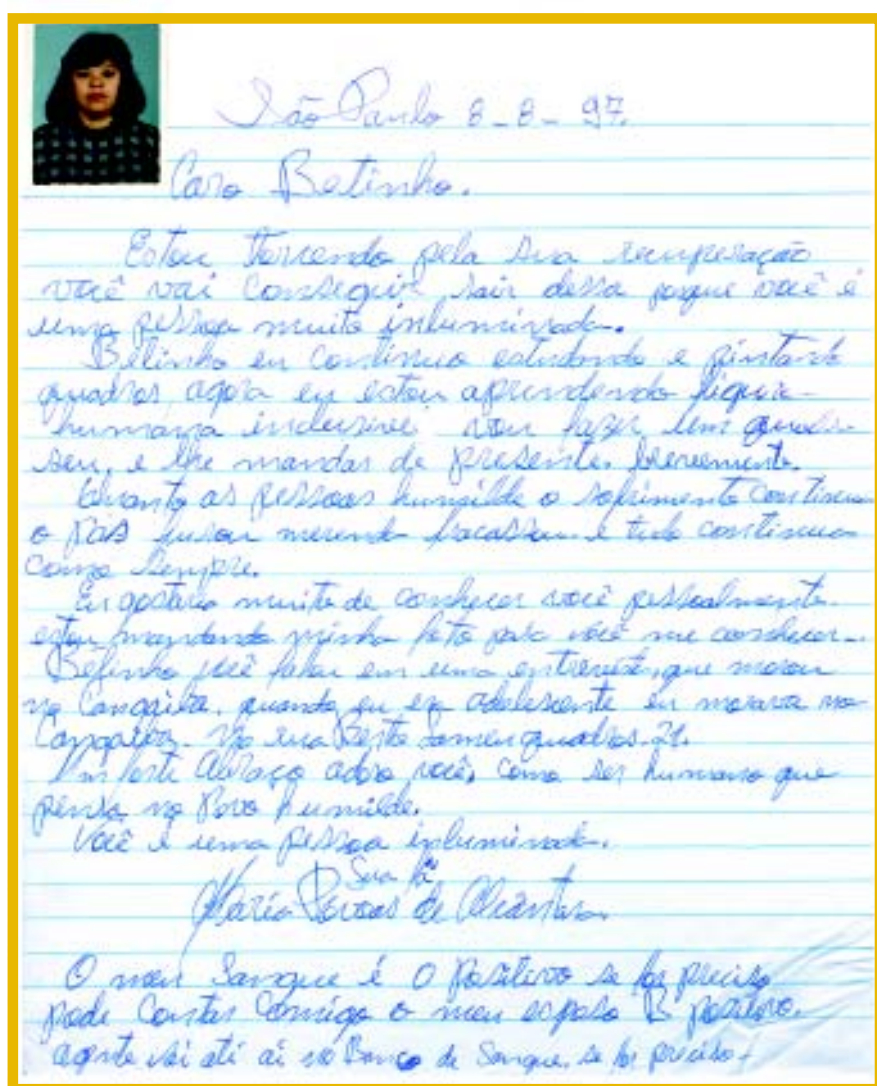 São Paulo 8-8-97.
Caro Betinho.
Estou torcendo pela sua recuperação
você vai conseguir sair dessa porque você é
uma pessoa muito inluminada.
Betinho eu continuo estudando e pintando
quadros, agora eu estou aprendendo figura
humana inclusive vou fazer um quadro
seu, e lhe mandar de presente. brevemente.
Quanto as pessoas humilde o sofrimento continua
o PAS merenda fracassou e tudo continua
como sempre.
Eu gostaria muito de conhecer você pessoalmente.
estou mandando minha foto para você me conhecer.
Betinho você falou em uma entrevista, que morou
no Cangaíba, quando eu era adolescente eu morava no
Cangaíba. Na rua quadros 21.
Um forte Abraço adoro você, como ser humano que
pensa no Povo humilde.
Você é uma pessoa inluminada.
Sua fã
Maria de Alcantara
O meu Sangue é O Positivo se for preciso
pode Contar Comigo o meu esposo B positivo.
agente vai até aí no Banco de Sangue, se for preciso-